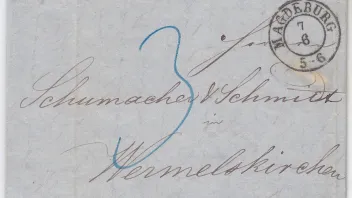 MAGDEBURG
7
6
5-6
3
Schumacher & Schmidt
in
Wermelskirchen